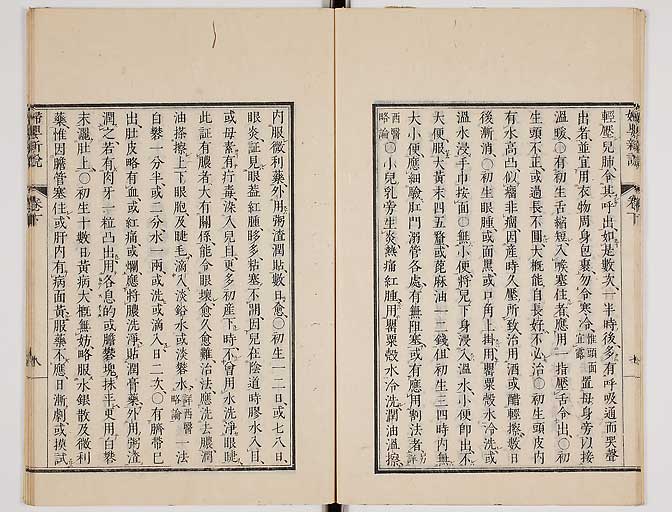 輕壓兒肺令其呼出如是數次一半時後多有呼吸通而哭聲
出者並宜用衣物周身包裹勿令寒冷惟頭面宜露置母身旁以接
溫暖○有初生舌縮短入喉塞住者應用一指壓舌令出○初
生頭不正或過長不圓大概能自長好不必治○初生頭皮內
有水高凸似瘤非瘤因產時久壓所致治用酒或醋輕擦數日
後漸消○初生眼腫或面黑或口角上掛用罌粟殼水冷洗或
溫水浸手巾按面○無小便將兒下身浸入溫水小便即出不
大便服大黃末四五釐或蓖麻油一二錢但初生三四時內無
大小便應細驗肛門溺管各處有無阻塞或有應用割法者詳
西醫略論○小兒乳旁生炎熱痛紅腫用罌粟殼水冷洗潤油溫擦
內服微利藥外用粥渣潤貼數日愈○初生一二日或七八日
眼炎証見眼蓋紅腫眵多粘塞不開因兒在陰道時膠水入目
或母素有疔毒染入兒目更多初產下時不曾用水洗淨眼睫
此証有膿者大有關係能令眼壞愈久愈難治法應洗去膿潤
油搽擦上下眼胞及睫毛滴入淡鉛水或淡礬水詳西醫略論一法
白礬一分半或二分水一兩或洗或滴入日二次○有臍帶已
出肚皮略有血或紅痛或爛應將膿洗淨貼潤膏藥外用粥渣
潤之若有肉牙一粒凸出用各息的或膽礬塊抹半更用白礬
末灑肚上○初生十數日黃病大概無妨略服水銀散及微利
藥惟因膽管塞住或肝內有病面黃服藥不應日漸劇或摸試